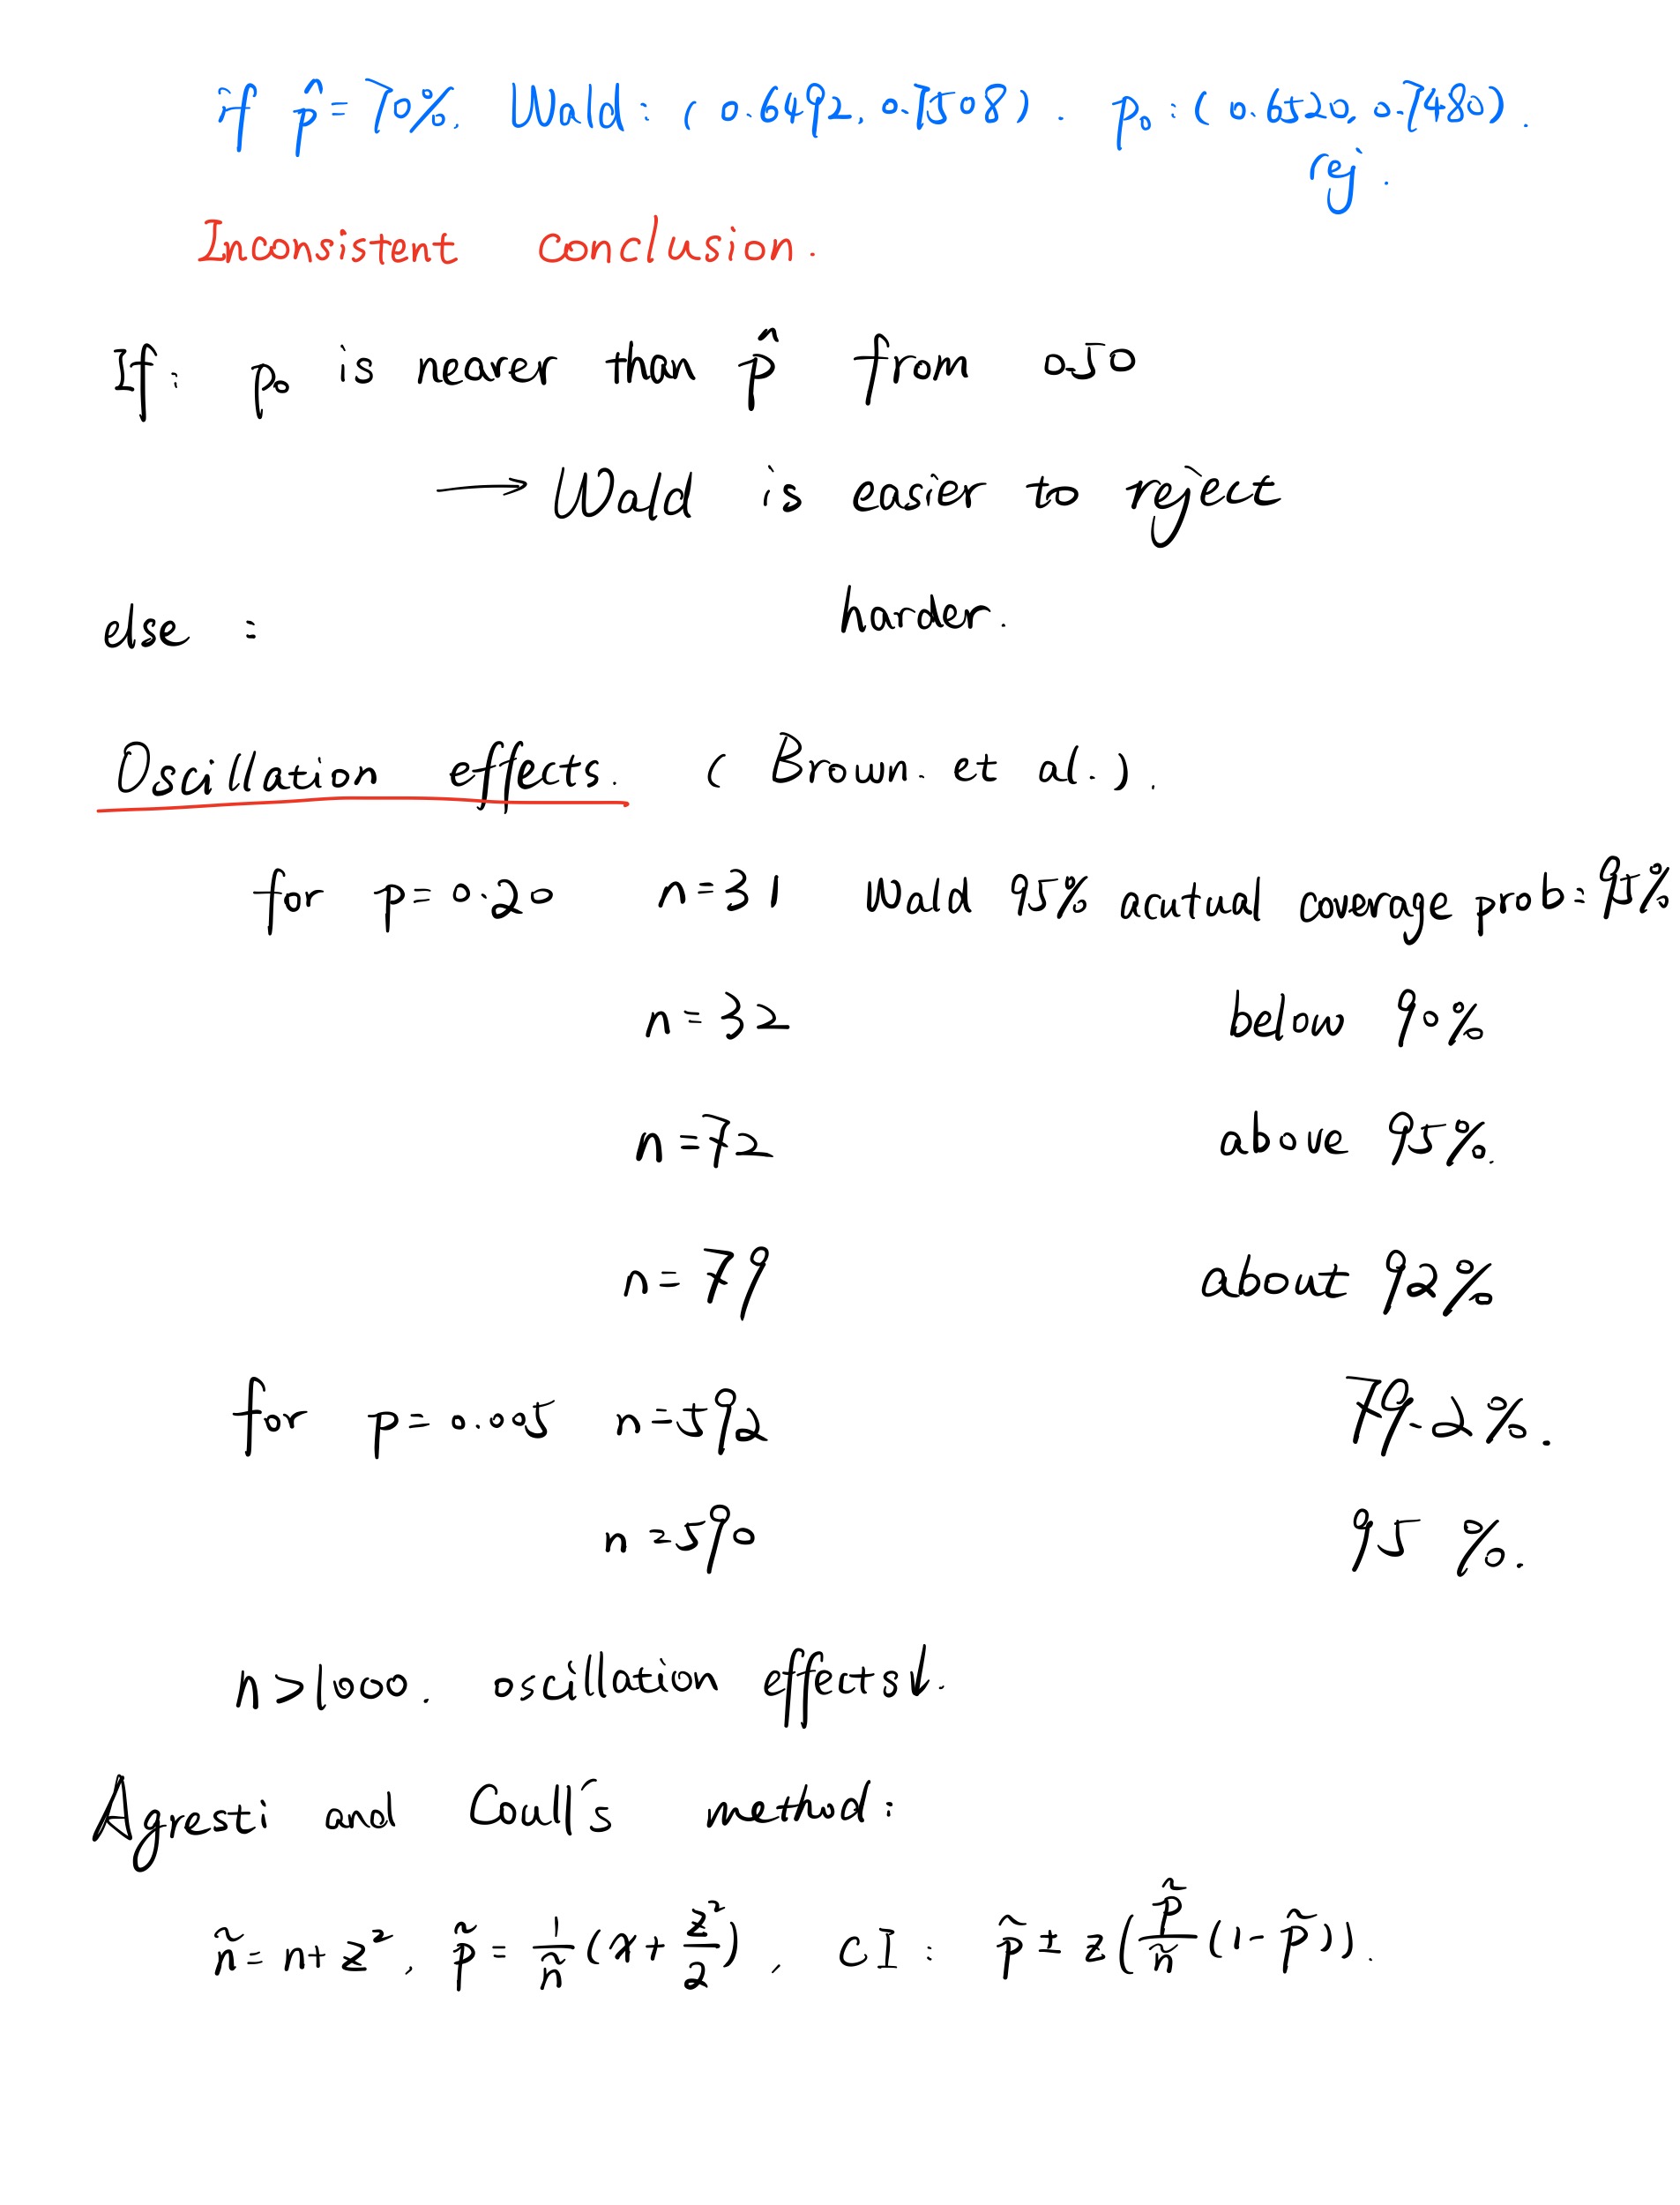 if p̂ = 70%. Wald: (0.6492, 0.7508). p₀: (0.6520, 0.7480).
rej.
Inconsistent conclusion.
If: p₀ is nearer than p̂ from 0.50
→ Wald is easier to reject
else: harder.
Oscillation effects. (Brown. et al.).
for p = 0.20 n = 31 Wald 95% acutual coverage prob = 95%
n = 32 below 90%
n = 72 above 95%.
n = 79 about 92%
for p = 0.005 n = 592 79.2%.
n = 590 95%.
n > 1000. oscillation effects ↓.
Agresti and Coull's method:
ñ = n + z², p̃ = 1/ñ (x + z²/2), CI: p̃ ± z(p̃/ñ (1 - p̃)).